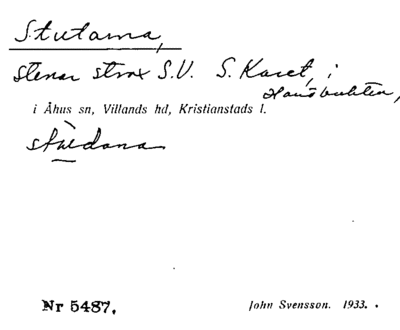 Stutarna,
stenar strax S.V. S. Karet, i
Hanöbukten,
i Åhus sn, Villands hd, Kristianstads l.
stùdana
Nr 5487.
John Svensson. 1933.